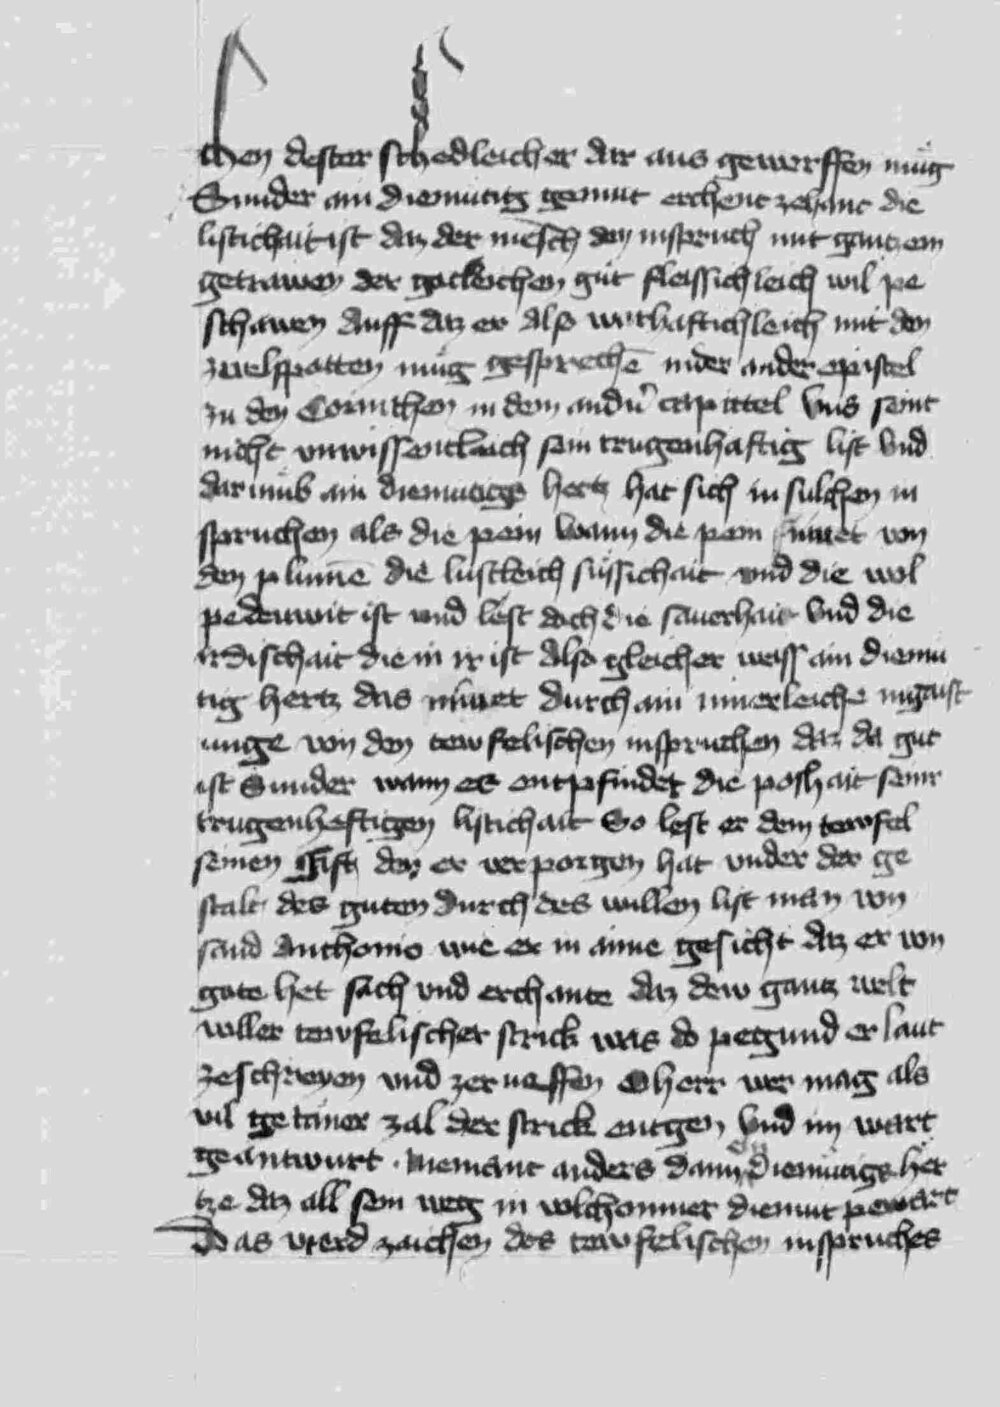 chen dester schedleicher dar aus gewerffen mug
Sunder ain diemutig gemut erchent zehant die
listichait ist daz der mesch den inspruch mit gantzem
getrawen der gotleichen gut fleissichleich wil pe
schawen Auff daz er also warhaftichleich mit den
zwelfpotten mug gesprechē in der ander epistel
zu den Corinthen in dem andn̄ capittel Vns seint
nicht vnwissentleich sein trugenhaftig list Vnd
darumb ain diemutigs hertz hat sich in sulchen in
spruchen als die pein Wann die pein nimet von
den plumē die lustleich sussichait vnd die wol
ist vnd lest doch die sauerhait Vnd die
irdischait die in ir ist Also gleicher weiss ain diemu
tig hertz das nimet durch ain innerleiche
unge von den tewfelischen inspruchen daz da gut
ist Sunder wann es entpfindet die poshait seinr
trugenheftigen listichait So lest er dem tewfel
seinen gift den er verporgen hat vnder der ge
stalt des guten Durch des willen list man von
sand Anthonio wie er in aime gesicht daz er von
gote het sach vnd erchante daz dew gantz welt
voller tewfelischer strick was do pegund er laut
zeschreyen vnd zerueffen O herr wer mag als
vil getaner zal der strick entgen Vnd im wart
geantwurt . Niemant anders dann ein diemutigs her
tze daz all sein weg in volchomner diemut pewart
Das vierd zaichen des tewfelischen inspruches